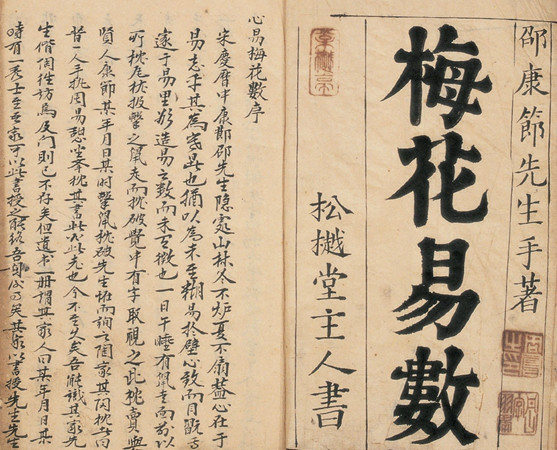 邵康節先生手著
梅花易數
松樾堂主人書
心易梅花數序
宋慶曆中康邵先生隱處山林冬不炉夏不扇蓋心在于
易忘乎其為寒暑也猶以為未至糊易於壁心致而目玩焉
邃于易理欲造易之數而未有徵也一日午睡有鼠走而前以
所枕瓦枕投擊之鼠走而枕破覺中有字取視之此枕賣與
賢人康節某年月日某時擊鼠枕破先生怪而詢之陶家其陶枕者曰
昔一人手執周易憩坐举枕其書此必此老也今不至久矣吾能識其家先
生偕陶往訪焉及門則已不存矣但遺書一冊謂其家人曰某年月日某
時有一秀士至吾家可以此書授之能終吾矣其家以書授先生先生